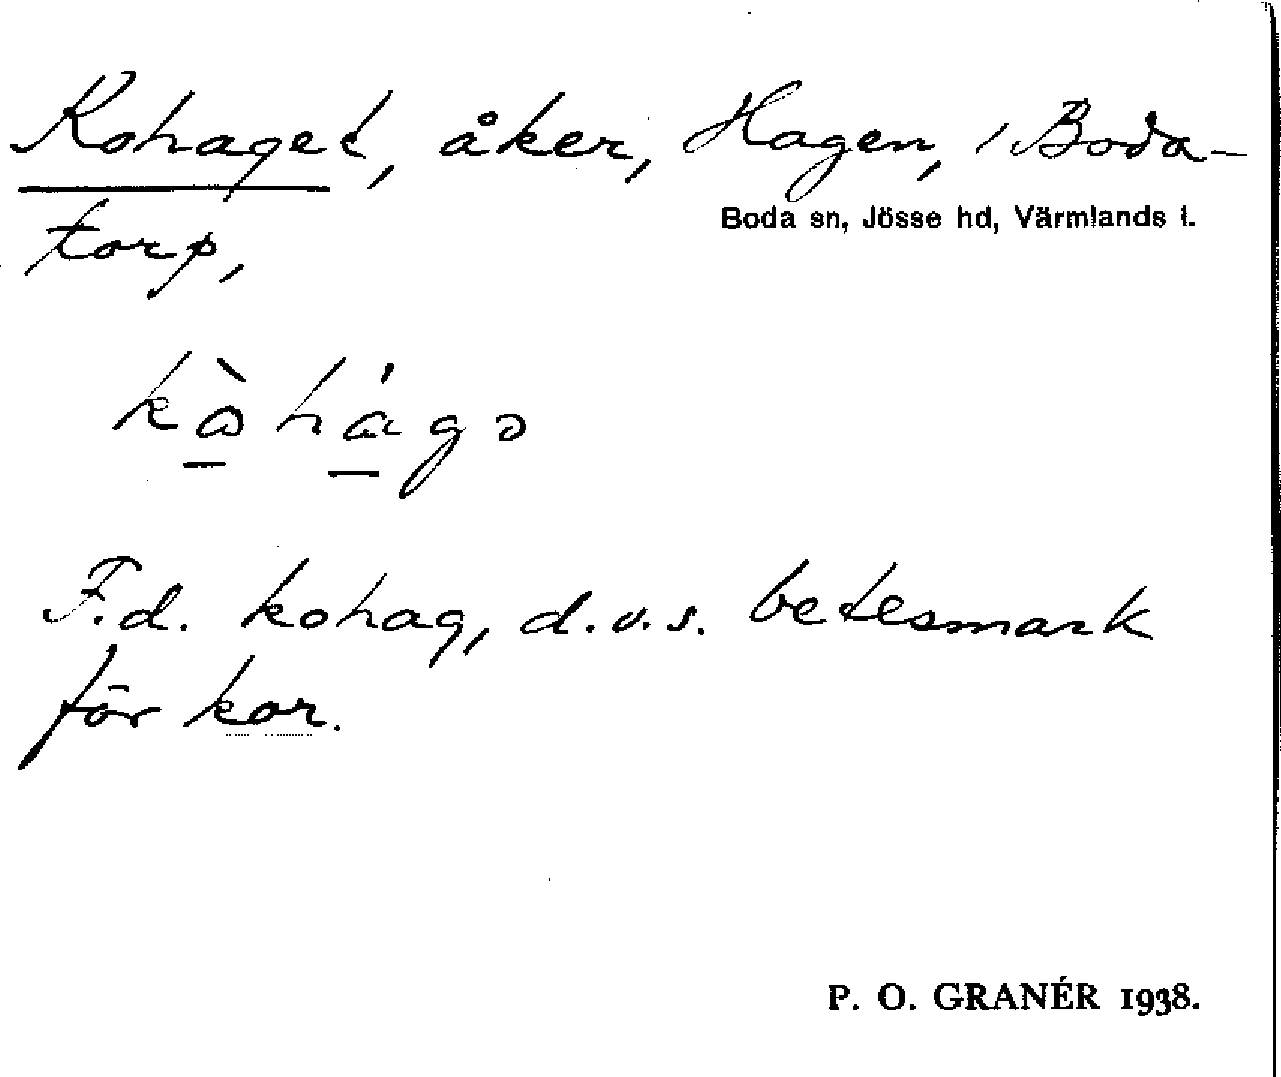 Kohaget, åker, Hagen, i Boda-
Boda sn, Jösse hd, Värmlands l.
torp,
kὼhágə
F.d. kohag, d.v.s. betesmark
för kor.
P. O. GRANÉR 1938.